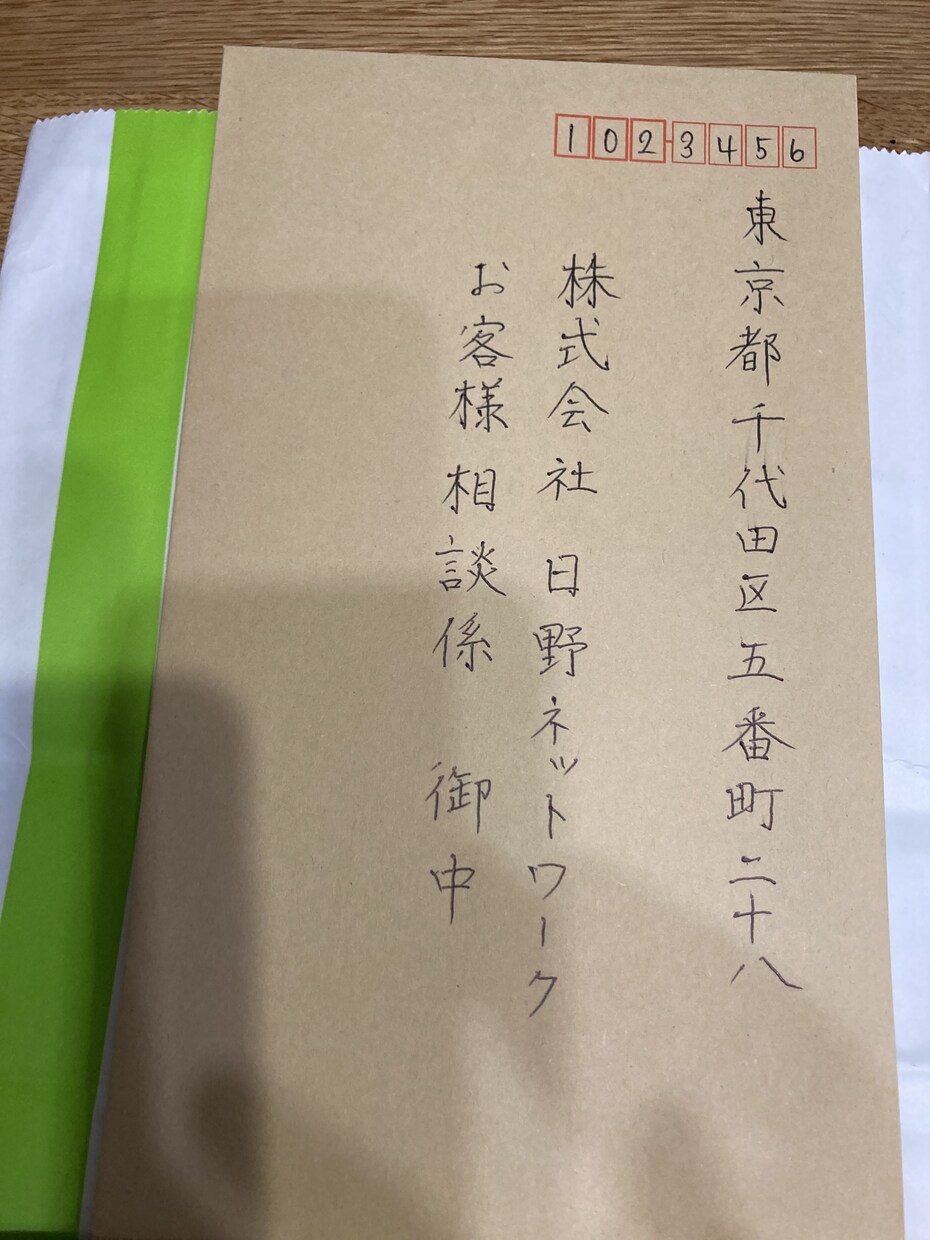 102-3456
東京都千代田区五番町二十八
株式会社 日野ネットワーク
お客様相談係 御中